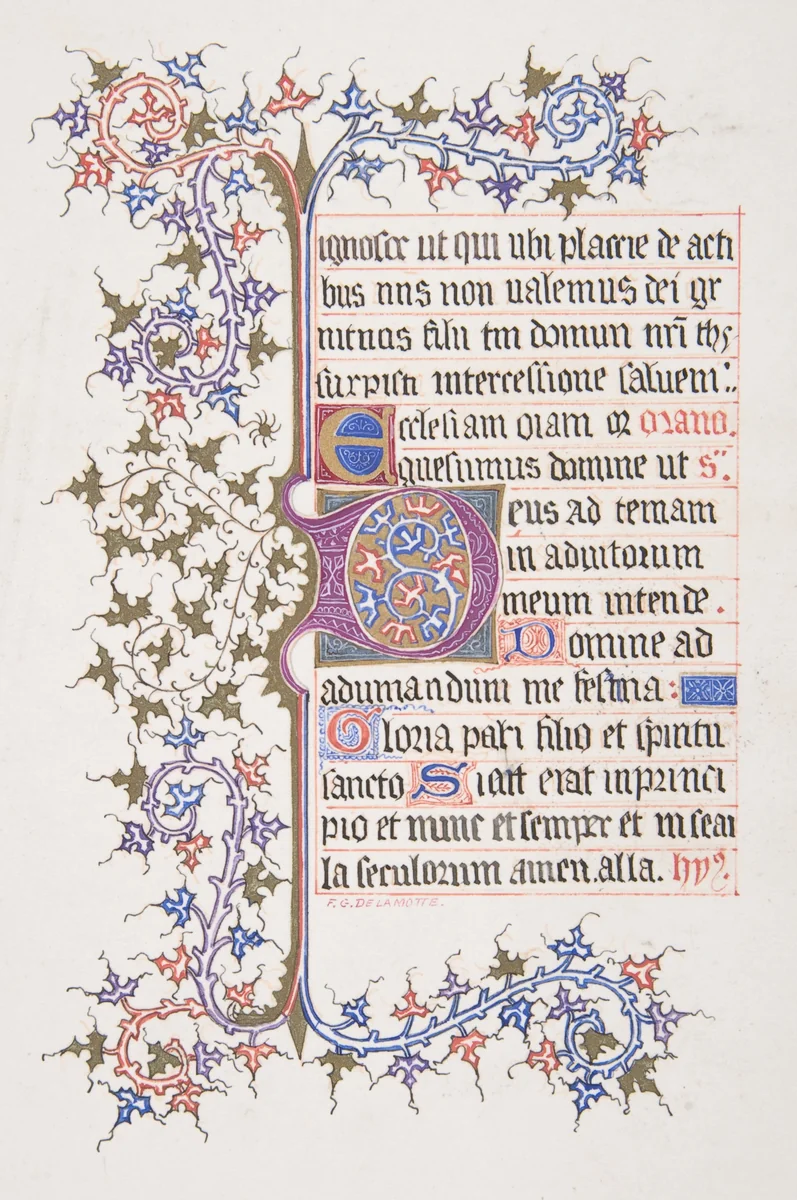 ignosce ut qui ubi placere de acti
bus nns non ualemus dei gr
nitncis filii tm domun nri
intercessione saluem
Ecclesiam oram
quesumus domine ut s
Deus ad temam
in aduitorum
meum intende.
Domine ad
adumandum me festina:
Gloria patri filio et spiritu
sancto Sicut erat inprinci
pio et nunc et semper et in secu
la seculorum amen.alla. hy
F.G.DELAMOTTE.